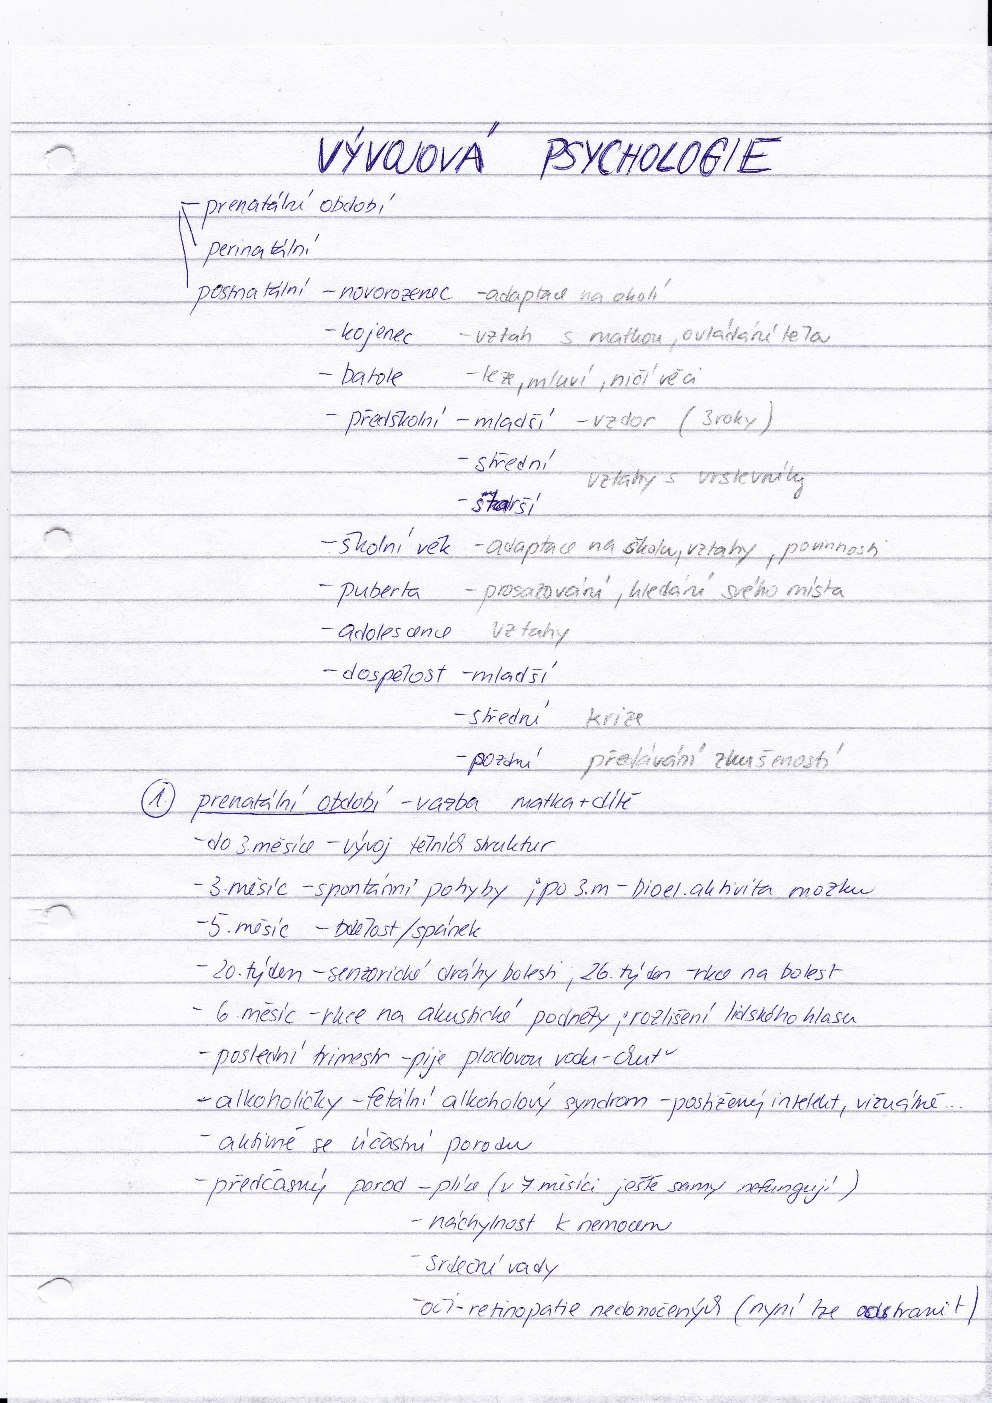 VÝVOJOVÁ PSYCHOLOGIE
- prenatální období
perinatální
postnatální - novorozenec - adaptace na okolí
- kojenec - vztah s matkou, ovládání těla
- batole - leze, mluví, ničí věci
- předškolní - mladší - vzdor (3roky)
- střední
vztahy s vrstevníky
- starší
- školní věk - adaptace na školu, vztahy, povinnosti
- puberta - prosazování, hledání svého místa
- adolescence vztahy
- dospělost - mladší
- střední krize
- pozdní předávání zkušeností
1. prenatální období - vazba matka + dítě
- do 3. měsíce - vývoj tělních struktur
- 3. měsíc - spontánní pohyby ; po 3.m - bioel. aktivita mozku
- 5. měsíc - bdělost/spánek
- 20. týden - senzorické dráhy bolesti, 26. týden - rkce na bolest
- 6. měsíc - rkce na akustické podněty ; rozlišení lidského hlasu
- poslední trimestr - pije plodovou vodu - chuť
- alkoholičky - fetální alkoholový syndrom - postižený intelekt, vizuálně...
- aktivně se účastní porodu
- předčasný porod - plíce (v 7 měsíci ještě samy nefungují)
- náchylnost k nemocem
- srdeční vady
- oči - retinopatie nedonočených (nyní lze odstranit)